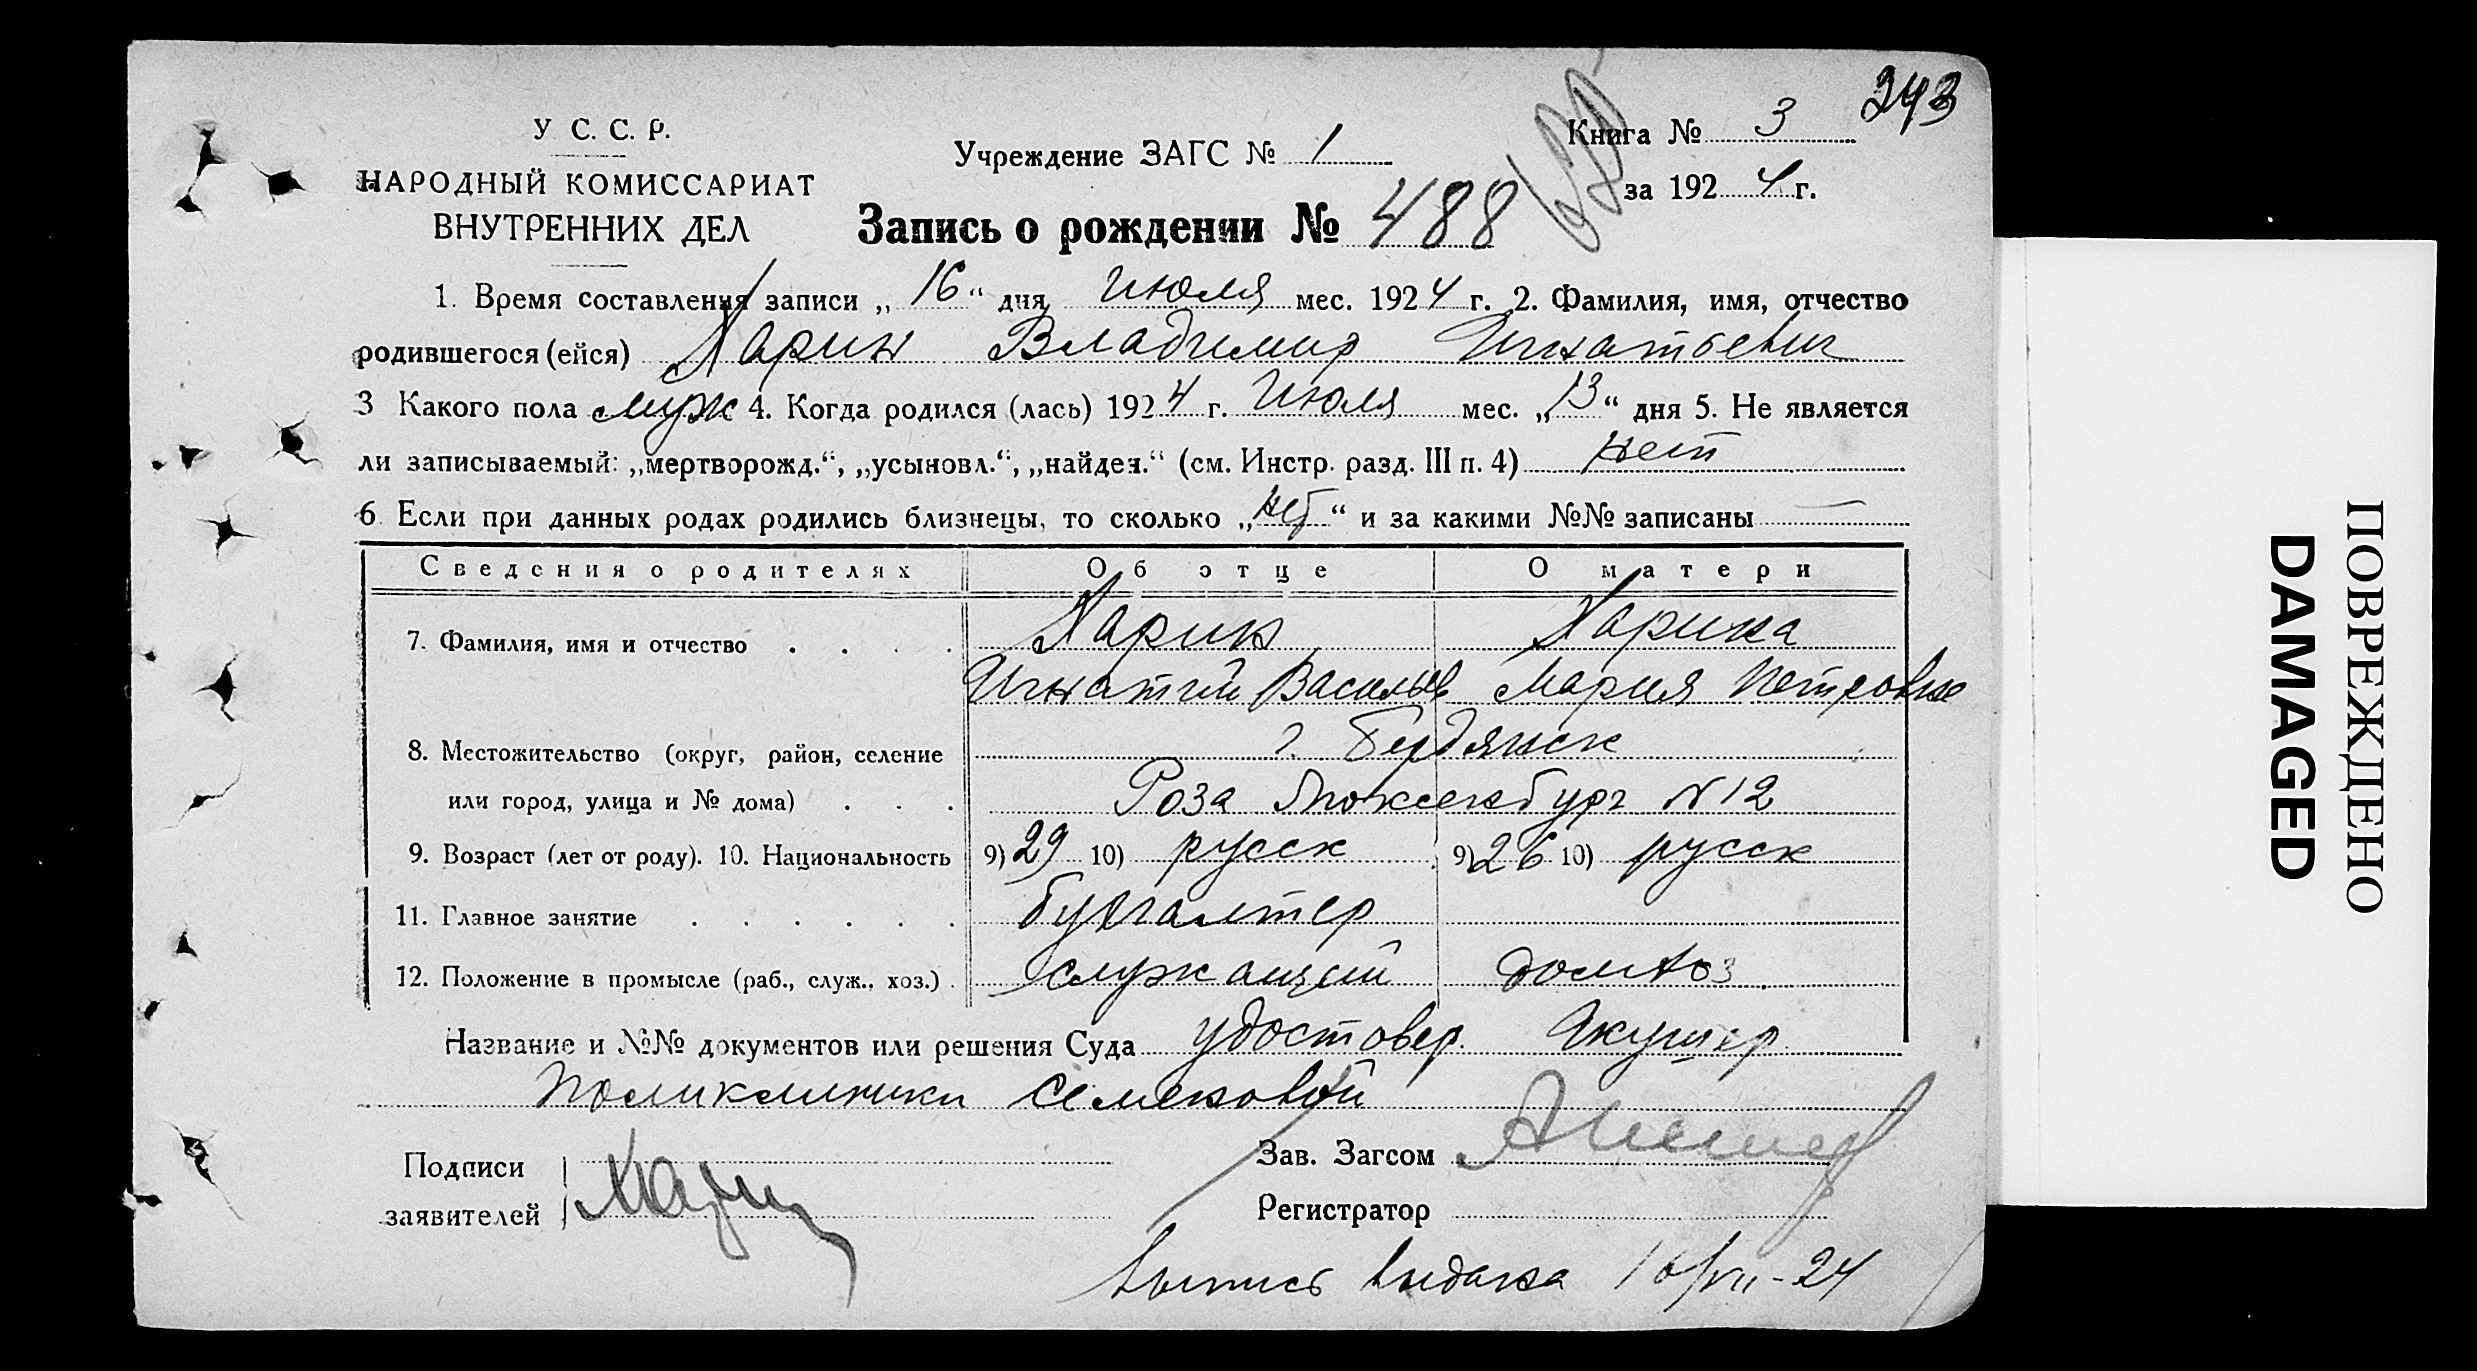 У С. С. Р.
НАРОДНЫЙ КОМИССАРИАТ
ВНУТРЕННИХ ДЕЛ
Учреждение ЗАГС № 1
Книга № 3
243
за 1924 г.
Запись о рождении № 488
1. Время составления записи „16“ дня июля мес. 1924 г. 2. Фамилия, имя, отчество
родившегося (ейся) Ларин Владимир Игнатьевич
3 Какого пола муж 4. Когда родился (лась) 1924 г. Июля мес. „13“ дня 5. Не является
ли записываемый: „мертворожд.“, „усыновл.“, „найден.“ (см. Инстр. разд. III п. 4) нет
6. Если при данных родах родились близнецы, то сколько „нет“ и за какими №№ записаны —
Сведения о родителях Об отце О матери
7. Фамилия, имя и отчество Ларин Ларина
Игнатий Васильев Мария Петровна
8. Местожительство (округ, район, селение г. Бердянск
или город, улица и № дома) Роза Люксенбург N 12
9. Возраст (лет от роду). 10. Национальность 9) 29 10) русск 9) 26 10) русск
11. Главное занятие бухгалтер
12. Положение в промысле (раб., служ., хоз.) служащий домхоз
Название и №№ документов или решения Суда удостовер. Акушер
поликлиники Семеновой
Подписи
заявителей
Зав. Загсом
Регистратор
выпись выдана 16/VII-24
ПОВРЕЖДЕНО
DAMAGED